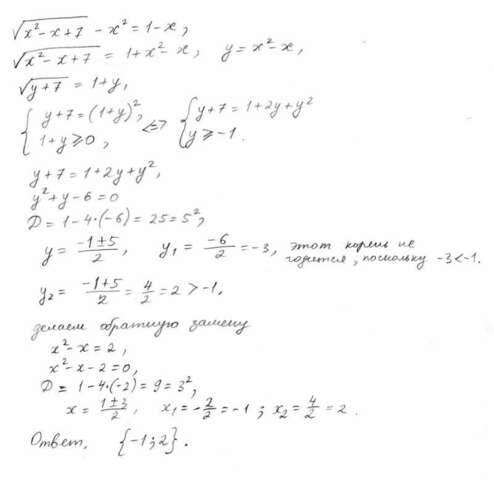 √(x²-x+7) - x² = 1 - x,
√(x²-x+7) = 1+x²-x, y = x²-x,
√(y+7) = 1+y,
{ y+7=(1+y)², 1+y⩾0, <=> { y+7=1+2y+y² y⩾-1.
y+7=1+2y+y²,
y²+y-6=0
D=1-4·(-6)=25=5²,
y = (-1±5)/2, y₁ = -6/2 = -3, этот корень не
годится, поскольку -3<-1.
y₂ = (-1+5)/2 = 4/2 = 2 > -1.
делаем обратную замену
x²-x=2,
x²-x-2=0,
D=1-4·(-2)=9=3²,
x = (1±3)/2, x₁ = -2/2 = -1; x₂ = 4/2 = 2.
Ответ, {-1; 2}.